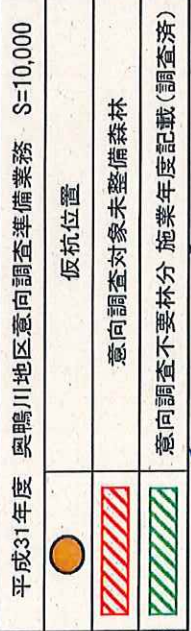 平成31年度 奥鴨川地区意向調査準備業務 S=10,000
仮杭位置
意向調査対象未整備森林
意向調査不要林分 施業年度記載(調査済)